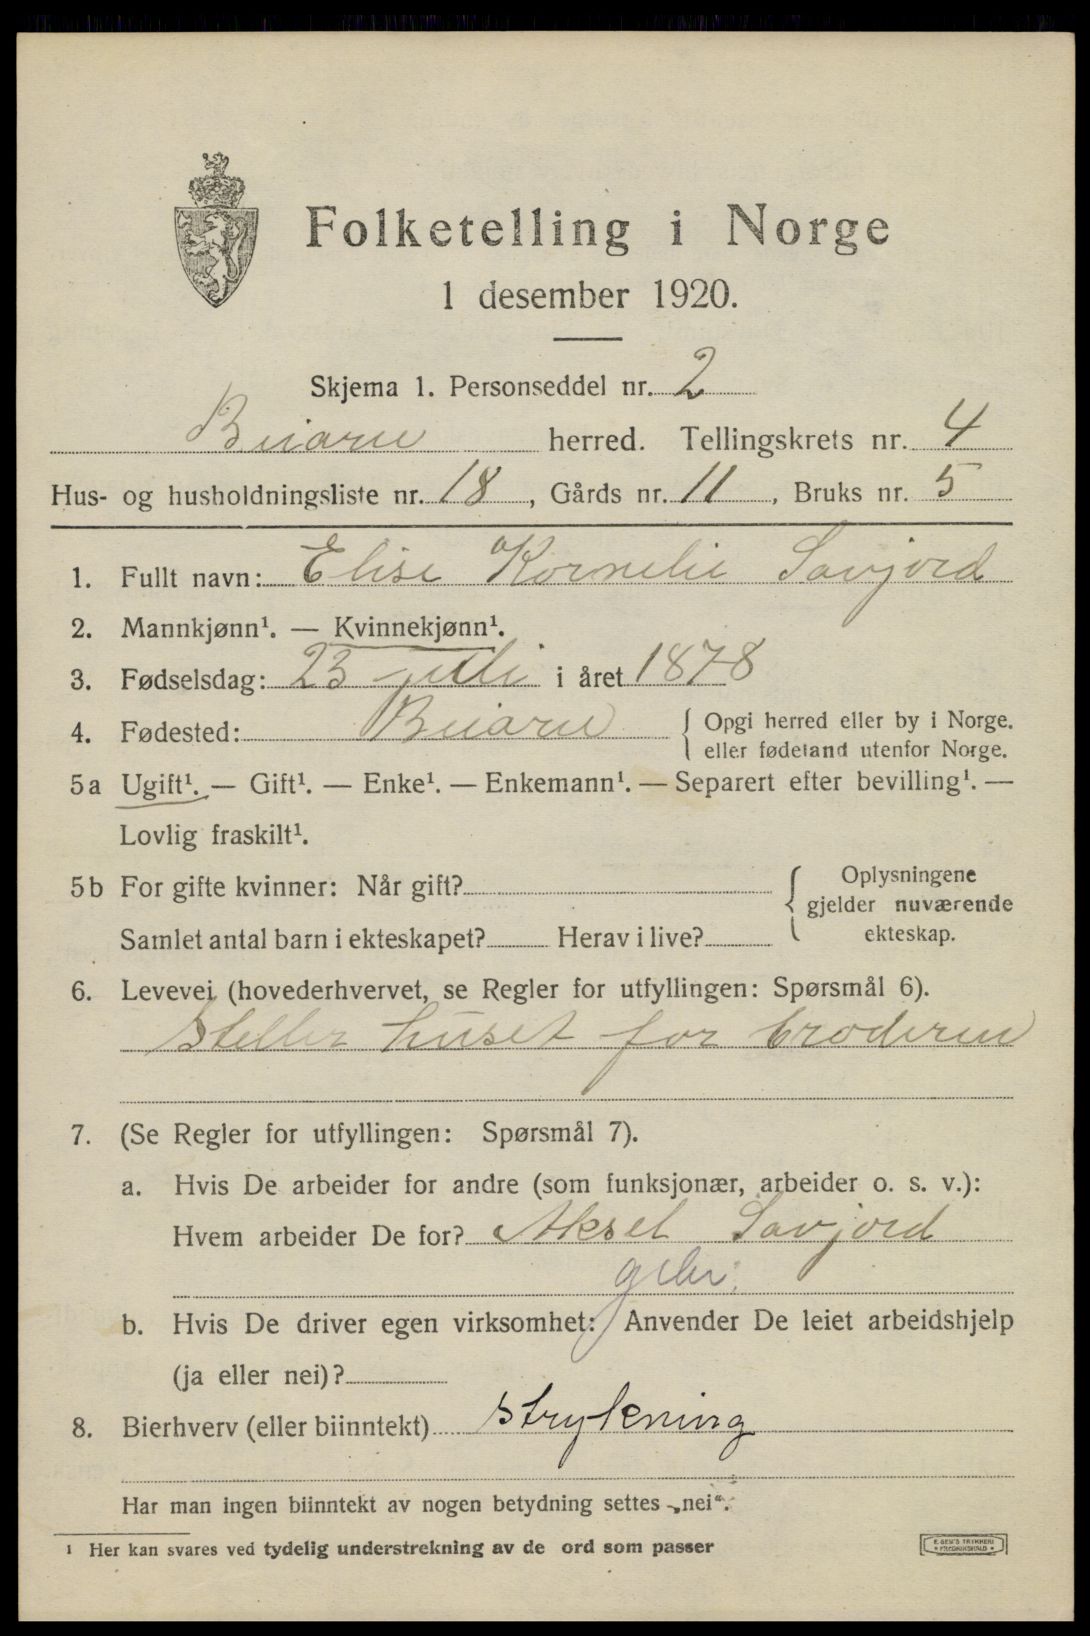 Folketelling i Norge
1 desember 1920.
Skjema 1. Personseddel nr. 2
Beiarn herred. Tellingskrets nr. 4
Hus- og husholdningsliste nr. 18, Gårds nr. 11, Bruks nr. 5
1. Fullt navn: Elise Kornelie Savjord
2. Mannkjønn¹. — Kvinnekjønn¹.
3. Fødselsdag: 23 juli i året 1878
4. Fødested: Beiarn { Opgi herred eller by i Norge.
eller fødeland utenfor Norge.
5a Ugift¹. — Gift¹. — Enke¹. — Enkemann¹. — Separert efter bevilling¹. —
Lovlig fraskilt¹.
5b For gifte kvinner: Når gift? { Oplysningene
gjelder nuværende
Samlet antal barn i ekteskapet? Herav i live? ekteskap.
6. Levevei (hovederhvervet, se Regler for utfyllingen: Spørsmål 6).
Steller huset for broderen
7. (Se Regler for utfyllingen: Spørsmål 7).
a. Hvis De arbeider for andre (som funksjonær, arbeider o. s. v.):
Hvem arbeider De for? Aksel Savjord
b. Hvis De driver egen virksomhet: Anvender De leiet arbeidshjelp
(ja eller nei)?
8. Bierhverv (eller biinntekt) strykning
Har man ingen biinntekt av nogen betydning settes „nei“.
¹ Her kan svares ved tydelig understrekning av de ord som passer
E. SEM'S TRYKKERI
* FREDRIKSHALD *